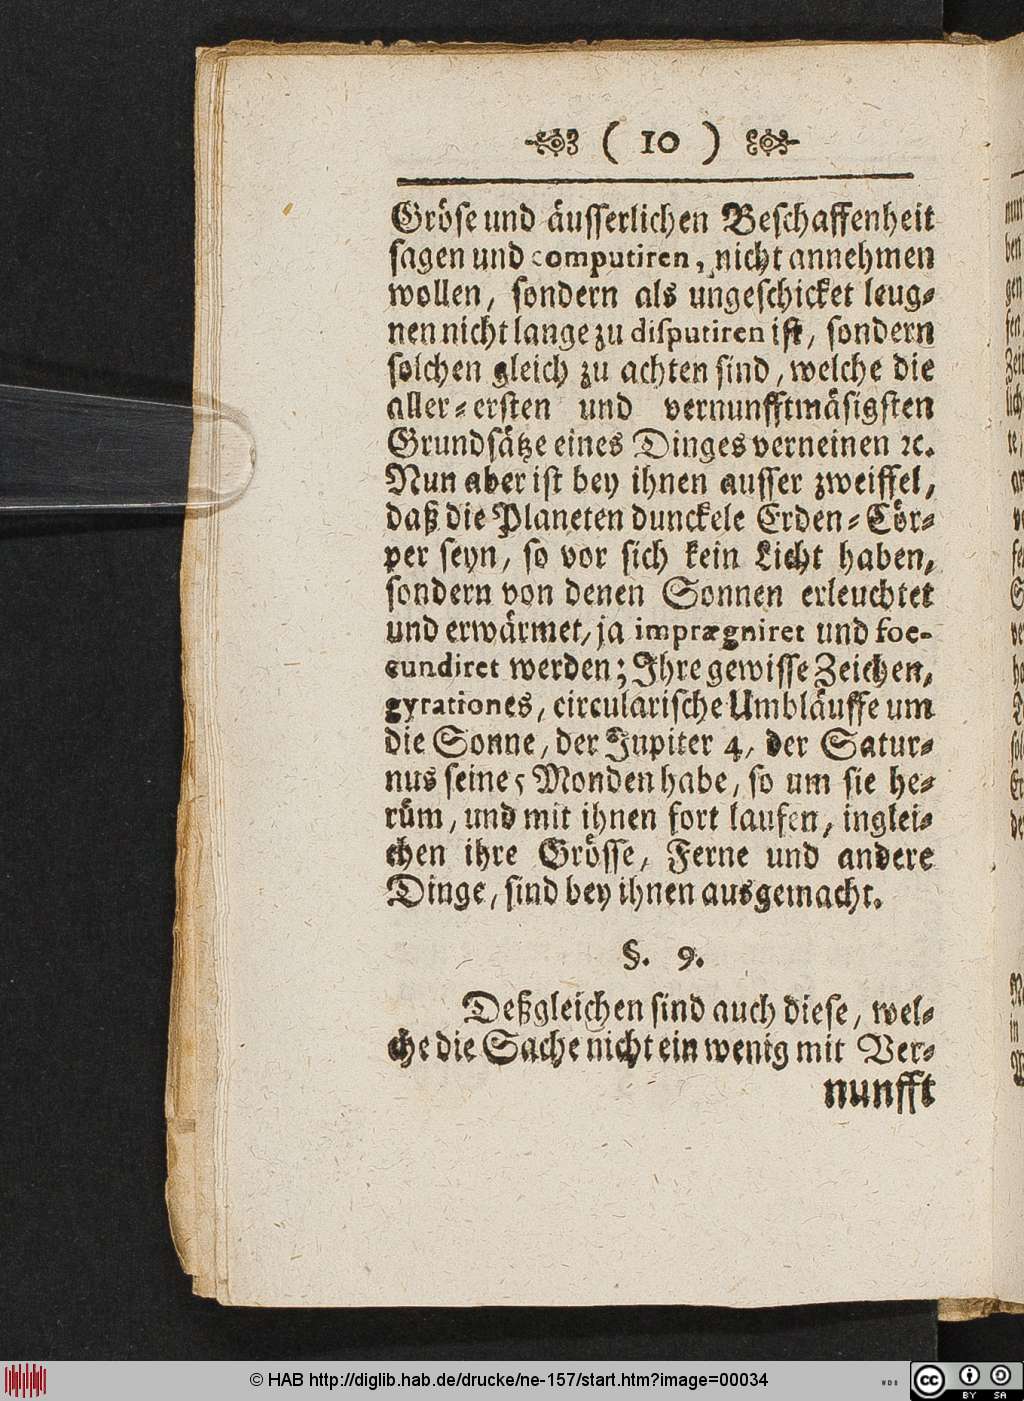 ( 10 )
Gröse und äusserlichen Beschaffenheit
sagen und computiren, nicht annehmen
wollen, sondern als ungeschicket leug-
nen nicht lange zu disputiren ist, sondern
solchen gleich zu achten sind, welche die
aller-ersten und vernunfftmäsigsten
Grundsätze eines Dinges verneinen ꝛc.
Nun aber ist bey ihnen ausser zweiffel,
daß die Planeten dunckele Erden-Cör-
per seyn, so vor sich kein Licht haben,
sondern von denen Sonnen erleuchtet
und erwärmet, ja imprægniret und foe-
cundiret werden; Ihre gewisse Zeichen,
gyrationes, circularische Umbläuffe um
die Sonne, der Jupiter 4, der Satur-
nus seine 5 Monden habe, so um sie he-
rüm, und mit ihnen fort laufen, inglei-
chen ihre Grösse, Ferne und andere
Dinge, sind bey ihnen ausgemacht.
§. 9.
Deßgleichen sind auch diese, wel-
che die Sache nicht ein wenig mit Ver-
nunfft
© HAB http://diglib.hab.de/drucke/ne-157/start.htm?image=00034
cc BY SA